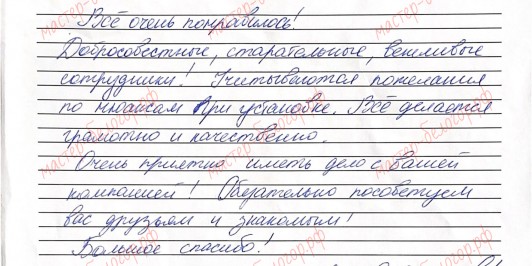 Всё очень понравилось!
Добросовестные, старательные, вежливые
сотрудники! Учитываются пожелания
по нюансам при установке. Всё делается
грамотно и качественно.
Очень приятно иметь дело с вашей
компанией! Обязательно посоветуем
вас друзьям и знакомым!
Большое спасибо!